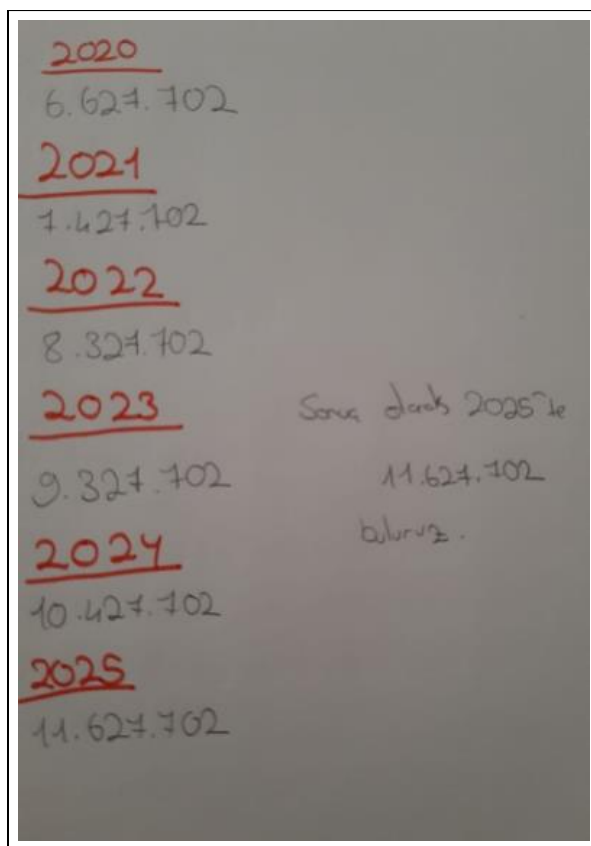 2020
6.627.702
2021
7.427.702
2022
8.327.702
2023
9.327.702
2024
10.427.702
2025
11.627.702
Sonuç olarak 2025'te
11.627.702
buluruz.